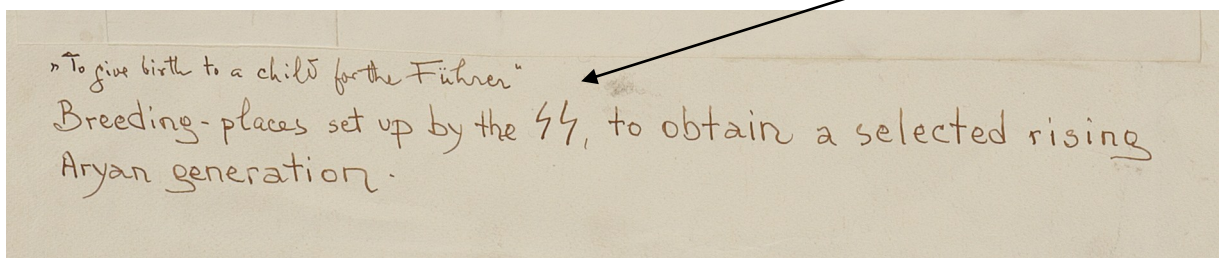 „To give birth to a child for the Führer“
Breeding-places set up by the ᛋᛋ, to obtain a selected rising
Aryan generation.